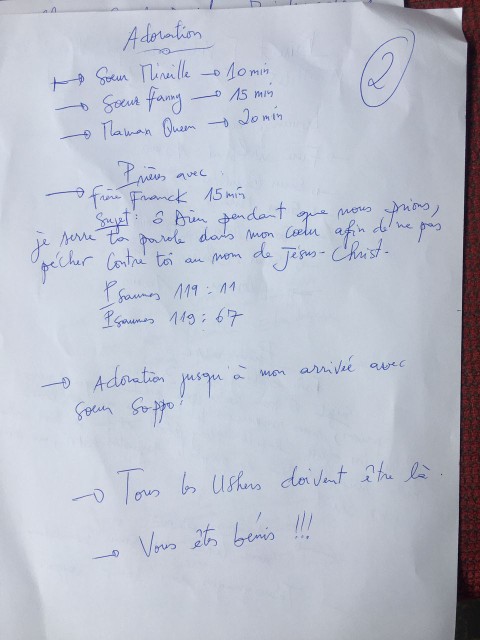 Adoration
2
→ Sœur Mireille → 10 min
→ Sœur Fanny → 15 min
→ Maman Queen → 20 min
Prières avec
→ Frère Franck 15 min
Sujet : ô Dieu pendant que nous prions,
je serre ta parole dans mon cœur afin de ne pas
pécher contre toi au nom de Jésus-Christ.
Psaumes 119 : 11
Psaumes 119 : 67
→ Adoration jusqu'à mon arrivée avec
sœur Soppo.
→ Tous les Ushers doivent être là.
→ Vous êtes bénis !!!